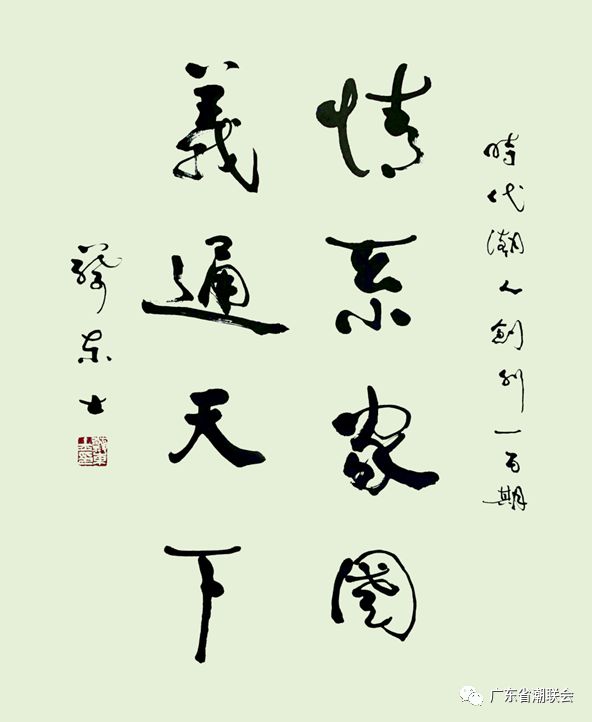 時代潮人創刊一百期
情系家國
義通天下
蔡东士
广东省潮联会